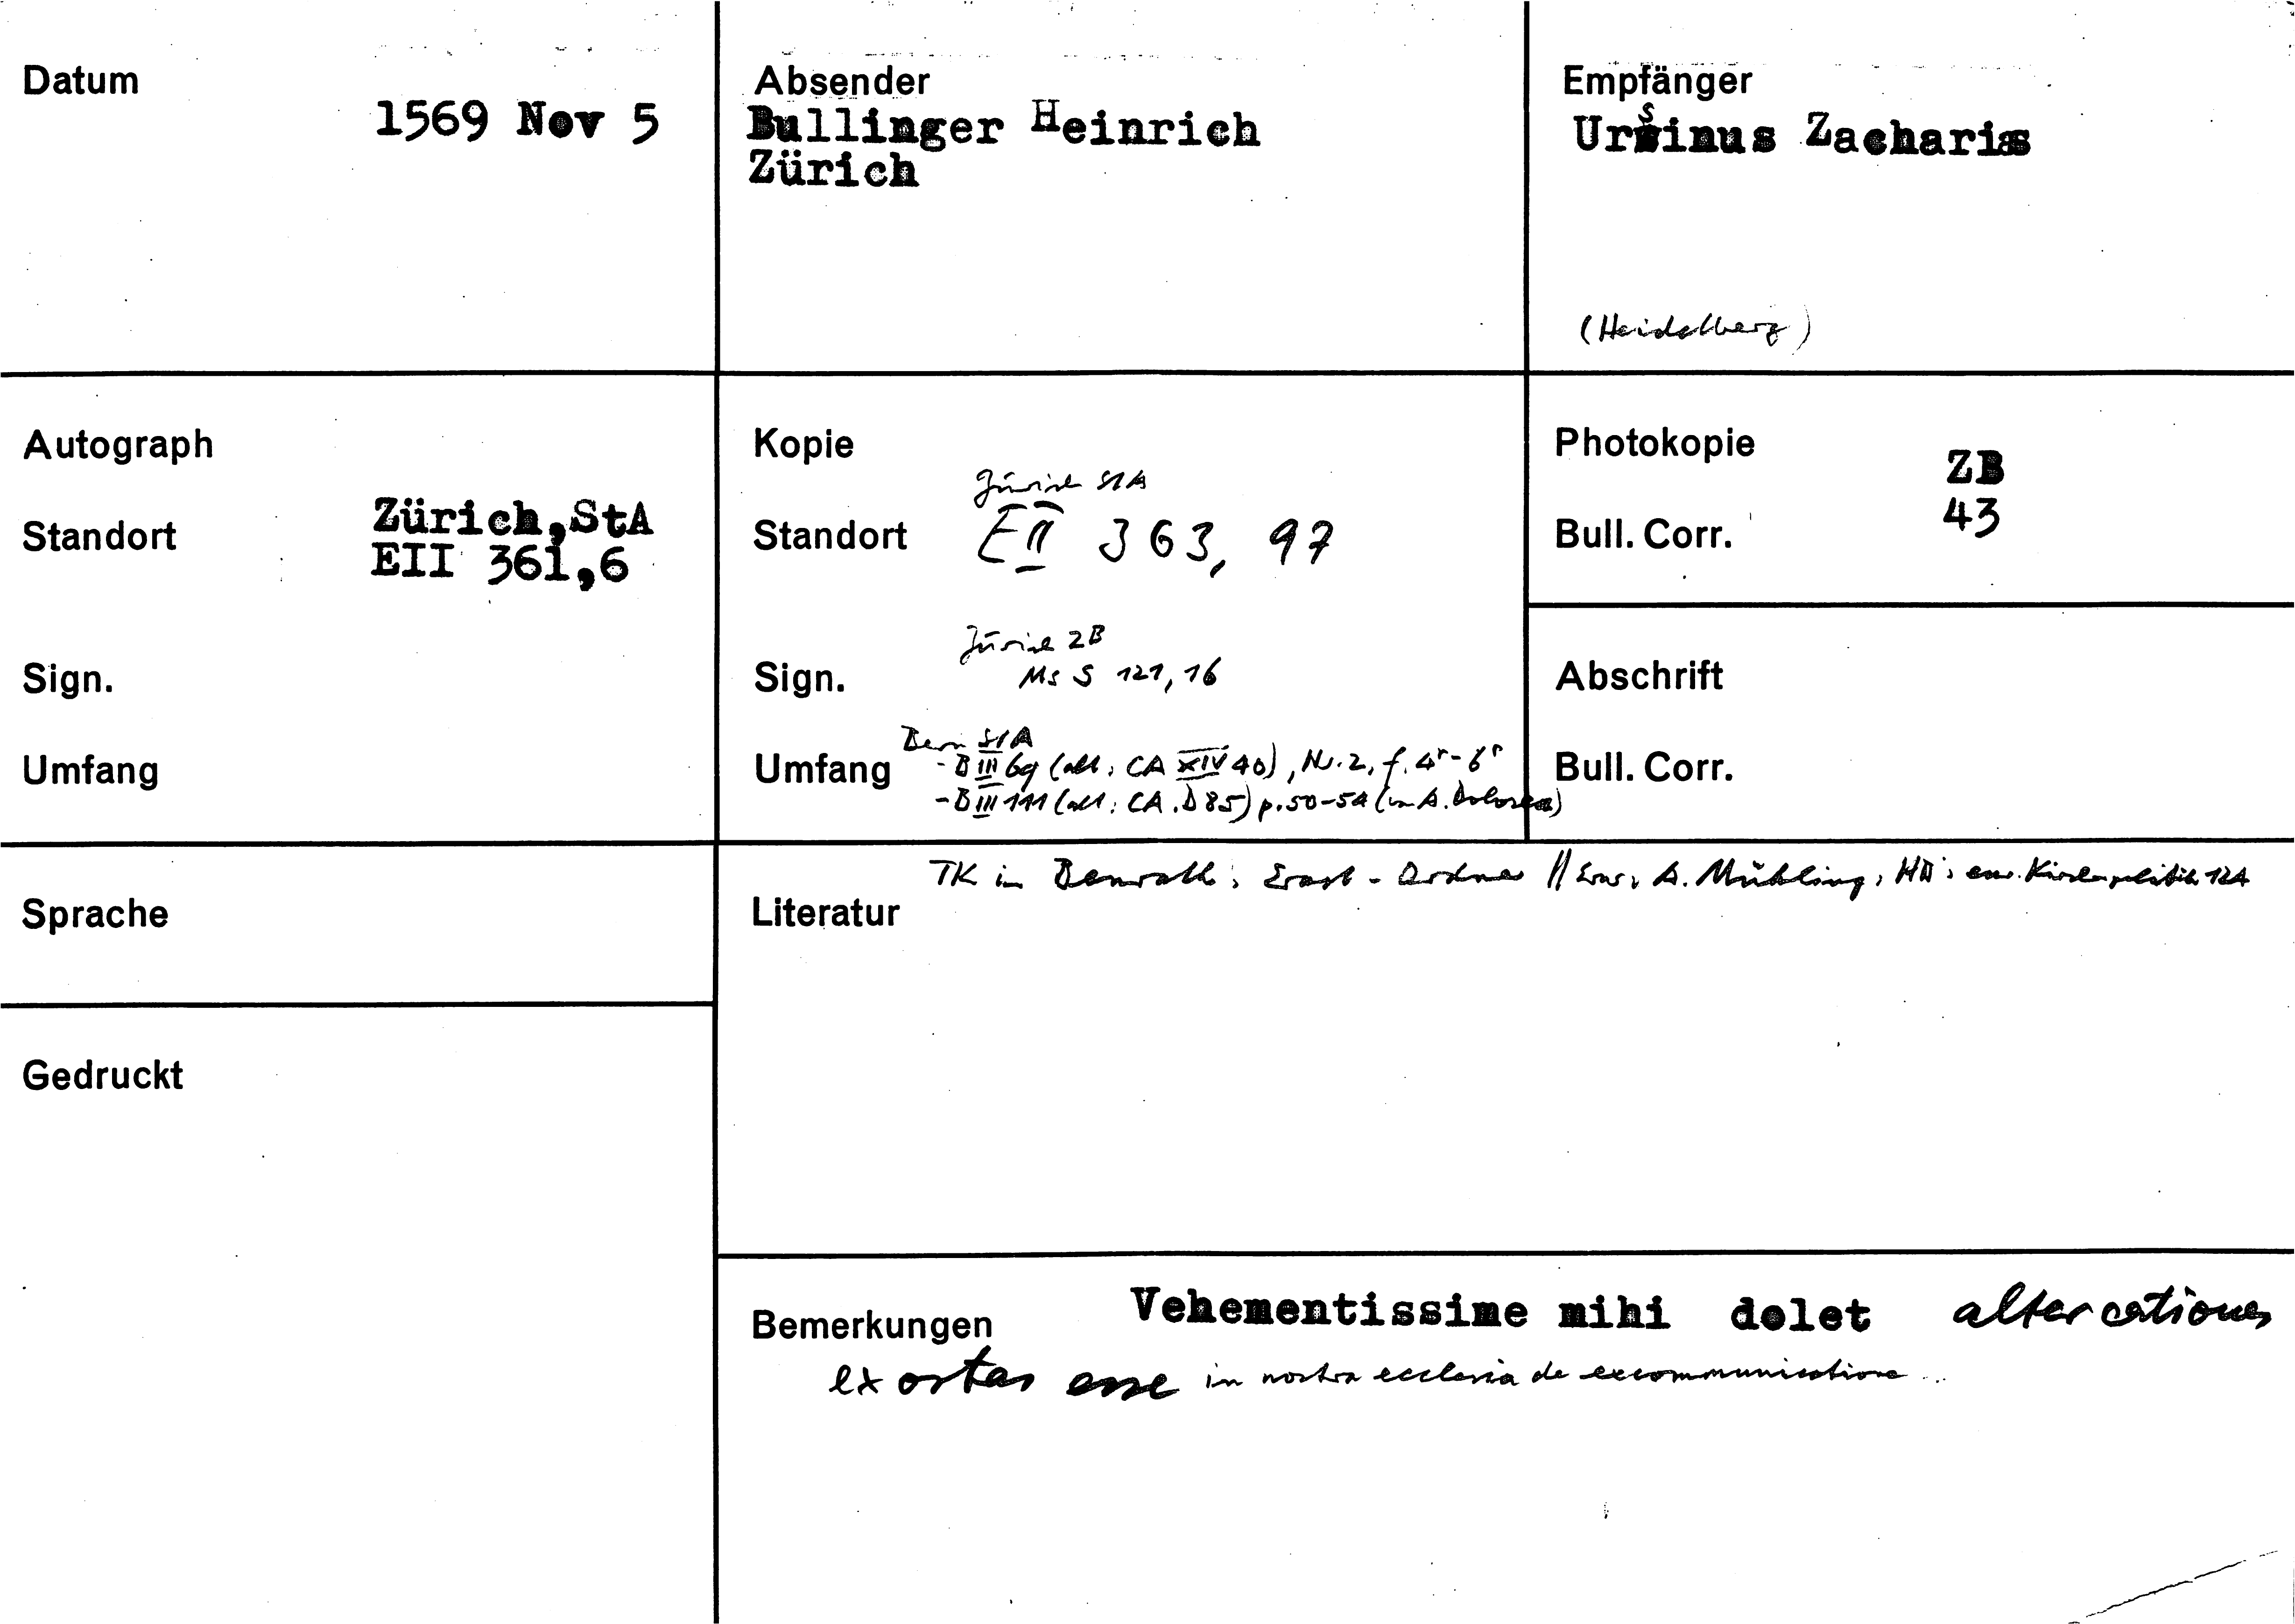 Datum
1569 Nov 5
Absender
Bullinger Heinrich
Zürich
Empfänger
Ursinus Zacharias
(Heidelberg)
Autograph
Standort
Zürich, StA
EII 361,6
Sign.
Umfang
Kopie
Zürich StA
Standort EII 363, 97
Zürich ZB
Sign. Ms S 121, 16
Bern StA
Umfang - B III 69 (alt: CA XIV 40), Nr. 2, f. 4r-6r
- B III 111 (alt: CA. D 85) p. 50-54 (in A.
Photokopie ZB
Bull. Corr. 43
Abschrift
Bull. Corr.
Sprache
Gedruckt
TK in Benrath: Erast-Ordner // Erw: A. Mühling, HB's eur. Kirchenpolitik 124
Literatur
Bemerkungen Vehementissime mihi dolet altercationes
exortas esse in nostra ecclesia de excommunicatione...